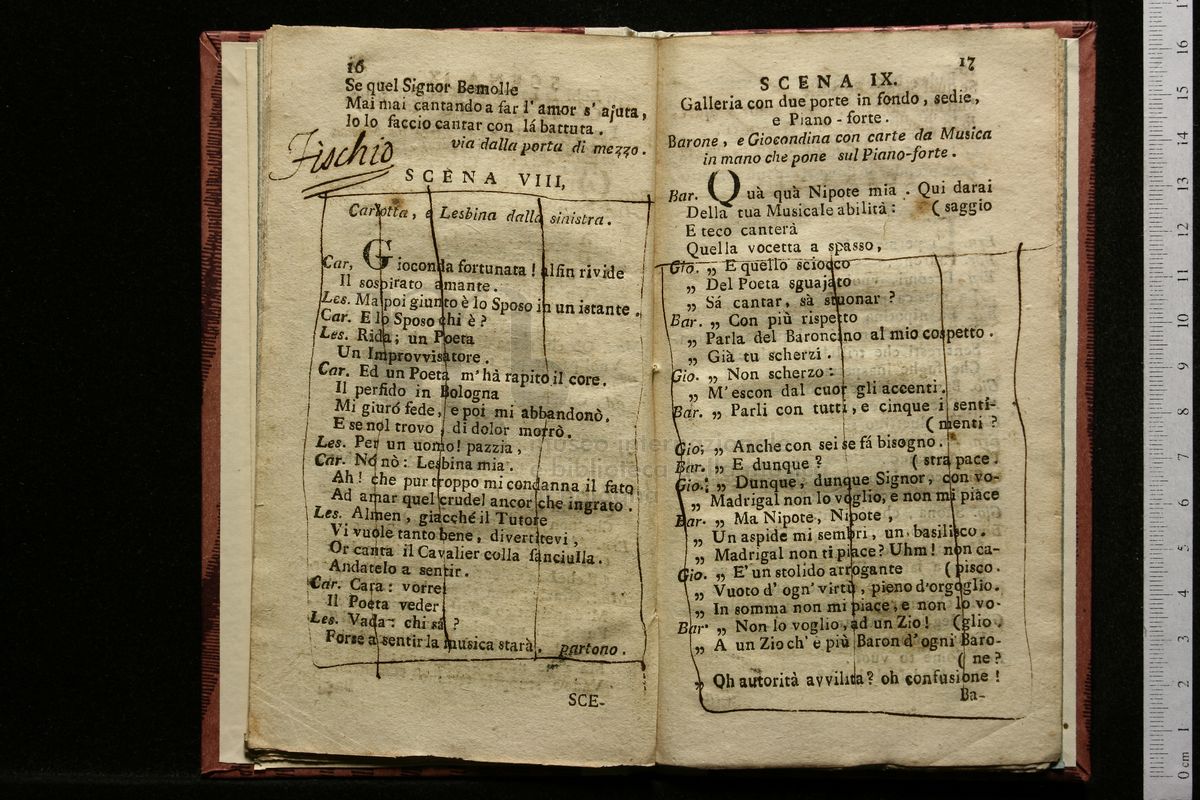 16
Se quel Signor Bemolle
Mai mai cantando a far l' amor s' ajuta,
Io lo faccio cantar con lá battuta.
via dalla porta di mezzo.
Fischio
SCENA VIII,
Carlotta, e Lesbina dalla sinistra.
Car, Gioconda fortunata! alfin rivide
Il sospirato amante.
Les. Ma poi giunto è lo Sposo in un istante.
Car. E lo Sposo chi è?
Les. Rida; un Poeta
Un Improvvisatore.
Car. Ed un Poeta m' hà rapito il core.
Il perfido in Bologna
Mi giuró fede, e poi mi abbandonò.
E se nol trovo, di dolor morrò.
Les. Per un uomo! pazzia,
Car. Nò nò: Lesbina mia.
Ah! che pur troppo mi condanna il fato
Ad amar quel crudel ancor che ingrato.
Les. Almen, giacché il Tutore
Vi vuole tanto bene, divertitevi,
Or canta il Cavalier colla fanciulla.
Andatelo a sentir.
Car. Cara: vorrei
Il Poeta veder
Les. Vada: chi sá?
Forse a sentir la musica starà. partono.
SCE-
17
SCENA IX.
Galleria con due porte in fondo, sedie,
e Piano-forte.
Barone, e Giocondina con carte da Musica
in mano che pone sul Piano-forte.
Bar. Quà quà Nipote mia. Qui darai
Della tua Musicale abilità: ( saggio
E teco canterà
Quella vocetta a spasso,
Gio. „ E quello sciocco
„ Del Poeta sguajato
„ Sá cantar, sà stuonar?
Bar. „ Con più rispetto
„ Parla del Baroncino al mio cospetto.
„ Già tu scherzi.
Gio. „ Non scherzo:
„ M' escon dal cuor gli accenti.
Bar. „ Parli con tutti, e cinque i senti-
( menti?
Gio; „ Anche con sei se fá bisogno.
Bar. „ E dunque? ( strapace.
Gio.; „ Dunque, dunque Signor, con vo-
„ Madrigal non lo voglio, e non mi piace
Bar. „ Ma Nipote, Nipote,
„ Un aspide mi sembri, un basilisco.
„ Madrigal non ti piace? Uhm! non ca-
Gio. „ E' un stolido arrogante ( pisco.
„ Vuoto d' ogn' virtù, pieno d'orgoglio.
„ In somma non mi piace, e non lo vo-
Bar. „ Non lo voglio, ad un Zio! (glio.
„ A un Zio ch' e più Baron d' ogni Baro-
( ne?
„ Oh autorità avvilita? oh confusione!
Ba-